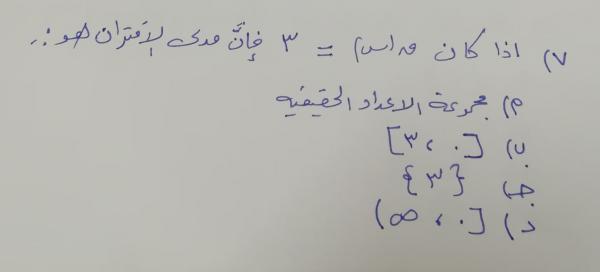 ٧) اذا كان ق(س) = ٣ فإنَّ مدى الإقتران هو :.
م) مجموعة الاعداد الحقيقيه
ب) [٠ ، ٣]
جـ) {٣}
د) [٠ ، ∞)